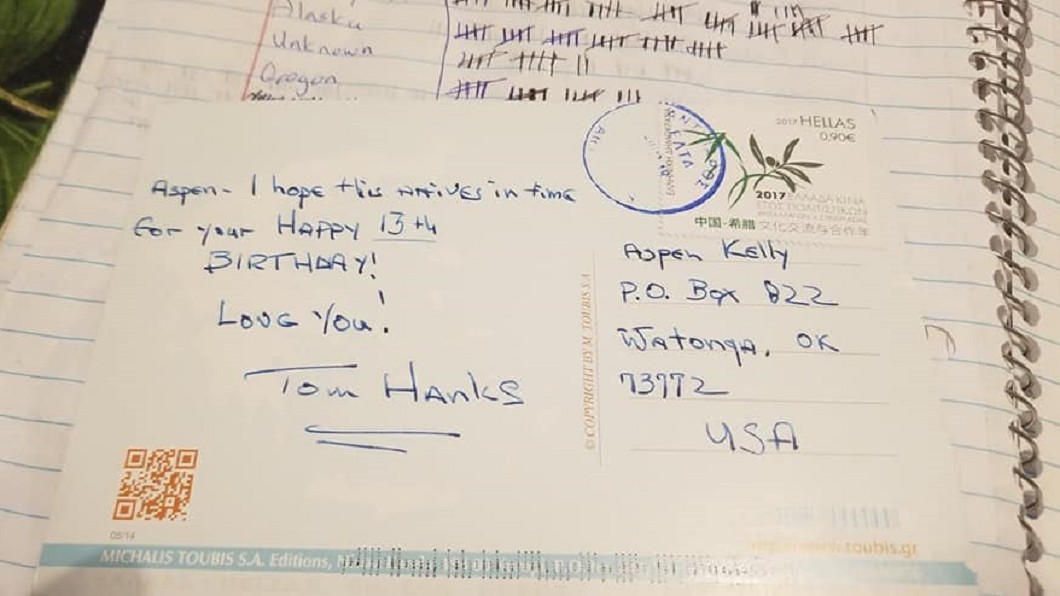 Alaska
Unknown
Oregon
2017 HELLAS
0,90€
ΕΛΤΑ
2017 ΕΛΛΑΔΑ ΚΙΝΑ
中国-希腊 文化交流与合作年
Aspen - I hope this arrives in time
for your HAPPY 13th
BIRTHDAY!
Love You!
Tom Hanks
© COPYRIGHT BY M. TOUBIS S.A.
Aspen Kelly
P.O. Box 822
Watonga, OK
73772
USA
05/14
www.toubis.gr
MICHALIS TOUBIS S.A. Editions,